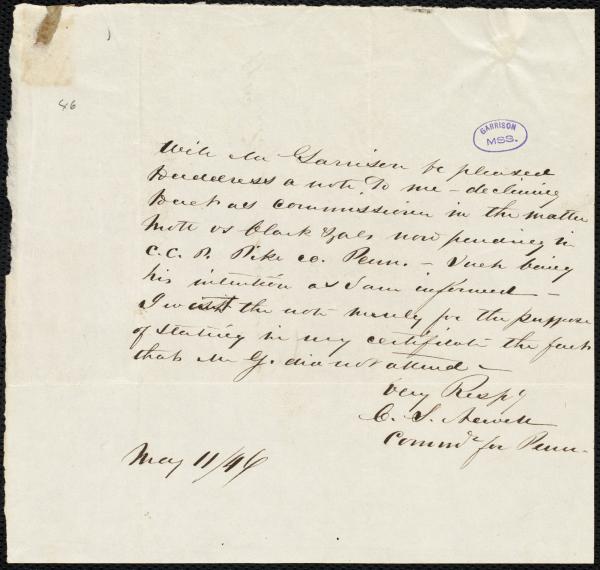 46
GARRISON
MSS.
Will Mr Garrison be pleased
to address a note to me - declining
to act as commissioner in the matter
Mott vs Clark & als now pending in
C. C. P. Pike co. Penn. - Such being
his intention as I am informed -
I want the note merely for the purpose
of stating in my certificate the fact
that Mr G. did not attend -
Very Respy
C. S. Newell
Commr for Penn.
May 11/46